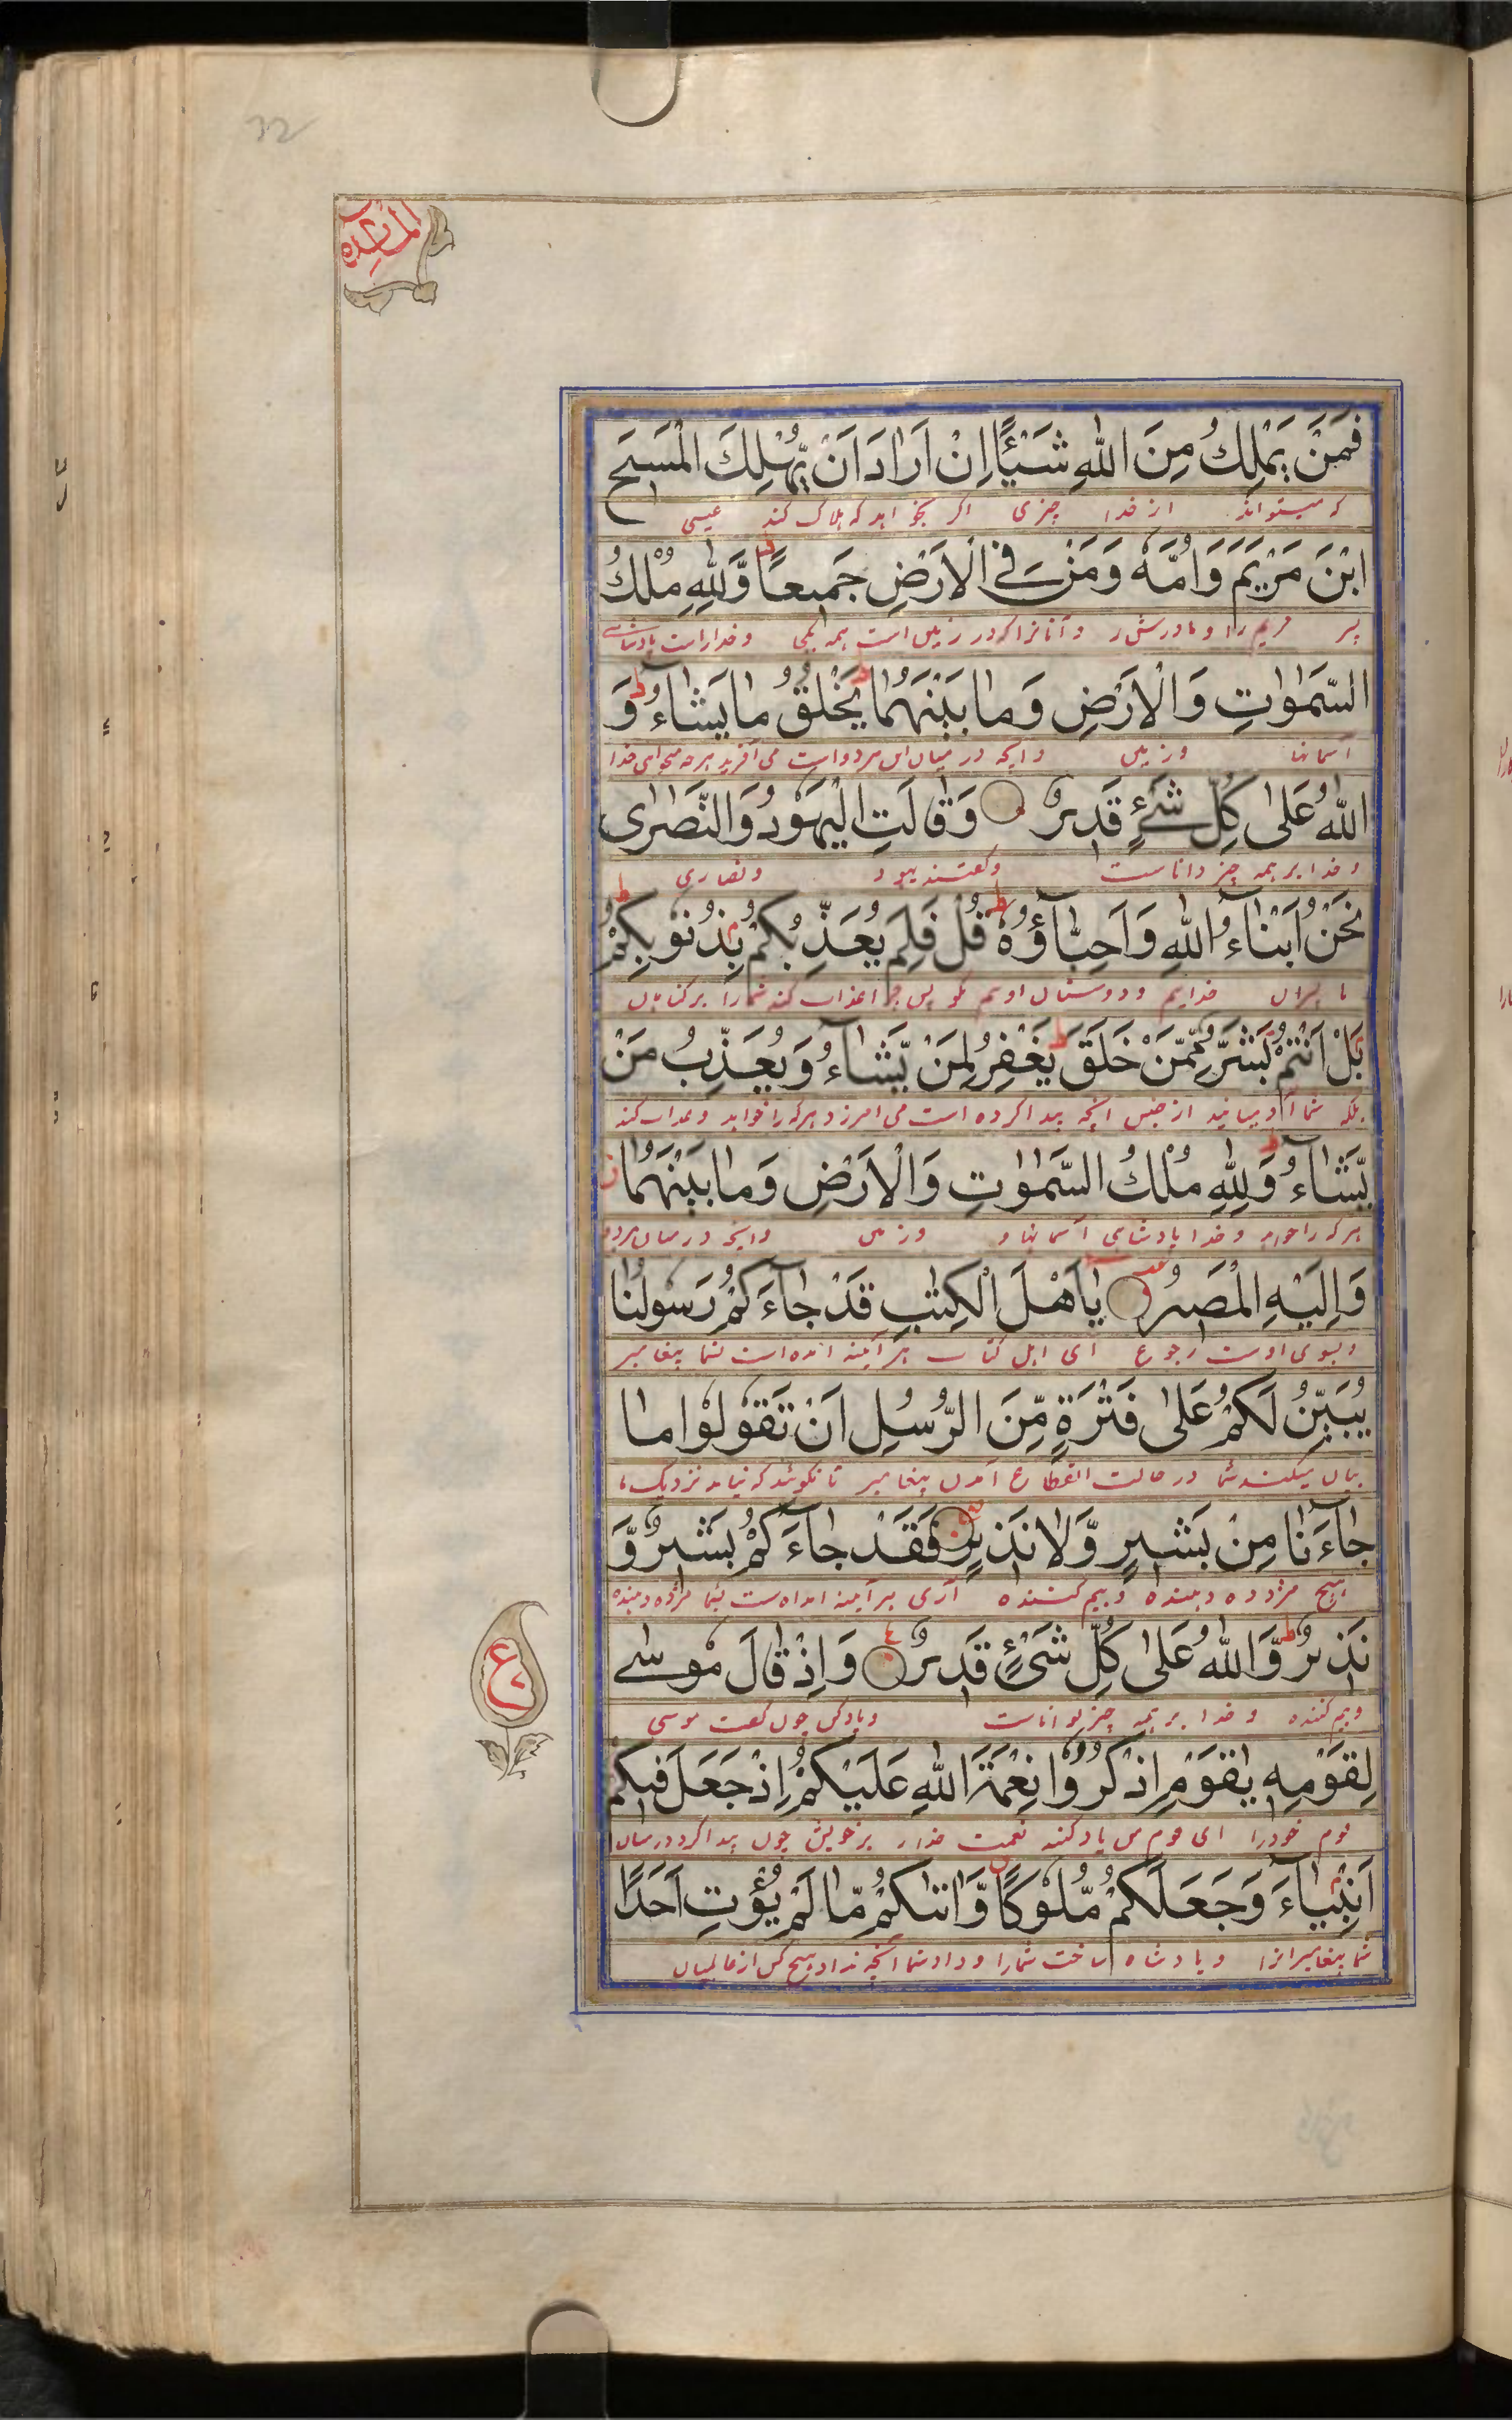 32
المائده
فَمَنْ يَمْلِكُ مِنَ اللّٰهِ شَيْـًٔا اِنْ اَرَادَ اَنْ يُّهْلِكَ الْمَسِيْحَ
که میتواند از خدا چیزی اگر بخواهد که هلاک کند عیسی
ابْنَ مَرْيَمَ وَاُمَّهٗ وَمَنْ فِي الْاَرْضِ جَمِيْعًا ط وَّلِلّٰهِ مُلْكُ
پسر مریم را و مادرش را و آنانرا که در زمین است همه یکجی و خداراست پادشاهی
السَّمٰوٰتِ وَالْاَرْضِ وَمَا بَيْنَهُمَا ط يَخْلُقُ مَا يَشَاءُ ط وَ
آسمانها و زمین و آنچه در میان این هر دو است می آفریند هر چه میخواهی خدا
اللّٰهُ عَلٰى كُلِّ شَيْءٍ قَدِيْرٌ وَقَالَتِ الْيَهُوْدُ وَالنَّصٰرٰى
و خدا بر همه چیز داناست و گفتند یهود و نصاری
نَحْنُ اَبْنَاءُ اللّٰهِ وَاَحِبَّاؤُهٗ ط قُلْ فَلِمَ يُعَذِّبُكُمْ بِذُنُوْبِكُمْ ط
ما پسران خدایم و دوستان اویم بگو پس چرا عذاب کند شمارا بر گناهان
بَلْ اَنْتُمْ بَشَرٌ مِّمَّنْ خَلَقَ ط يَغْفِرُ لِمَنْ يَّشَاءُ وَيُعَذِّبُ مَنْ
بلکه شما آدمیانید از جنس آنچه پیدا کرده است می امرزد هر که را خواهد و عذاب کند
يَّشَاءُ ط وَلِلّٰهِ مُلْكُ السَّمٰوٰتِ وَالْاَرْضِ وَمَا بَيْنَهُمَا ز
هر که را خواهد و خدا پادشاهی آسمانها و و زمین و آنچه در میان هر دو
وَاِلَيْهِ الْمَصِيْرُ يٰاَهْلَ الْكِتٰبِ قَدْ جَاءَكُمْ رَسُوْلُنَا
و بسوی اوست رجوع ای اهل کتاب هر آینه آمده است بشما پیغامبر
يُبَيِّنُ لَكُمْ عَلٰى فَتْرَةٍ مِّنَ الرُّسُلِ اَنْ تَقُوْلُوْا مَا
بیان میکند شما در حالت انقطاع آمدن پیغامبر تا نگوئید که نیامد نزدیک ما
جَاءَنَا مِنْ بَشِيْرٍ وَّلَا نَذِيْرٍ فَقَدْ جَاءَكُمْ بَشِيْرٌ وَّ
هیچ مژده دهنده و بیم کننده آری هر آینه امده است بشما مژده دهنده
نَذِيْرٌ ط وَّاللّٰهُ عَلٰى كُلِّ شَيْءٍ قَدِيْرٌ وَاِذْ قَالَ مُوْسٰى
و بیم کننده و خدا بر همه چیز تواناست و یاد کن چون گفت موسی
ع
لِقَوْمِهٖ يٰقَوْمِ اذْكُرُوْا نِعْمَةَ اللّٰهِ عَلَيْكُمْ اِذْ جَعَلَ فِيْكُمْ
قوم خود را ای قوم من یاد کنید نعمت خدا را بر خویش چون پیدا کرد در میان
اَنْبِيَاءَ وَجَعَلَكُمْ مُّلُوْكًا وَّاٰتٰىكُمْ مَّا لَمْ يُؤْتِ اَحَدًا
شما پیغامبرانرا و پادشاه ساخت شمارا و داد شما آنچه نداد هیچ کس از عالمیان